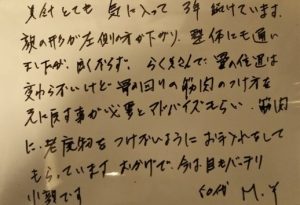 美針とても気に入って3年 続けています.
顔の形が左側の方が下がり、整体にも通い
ましたが、良くならず。らくえんで、骨の位置は
変わらないけど骨の回りの筋肉のつけ方を
元に戻す事が必要とアドバイスもらい、筋肉
に、老廃物をつけないようにお手入れをして
もらっています おかげで、今は目もパッチリ
小顔です
50代 M.Y